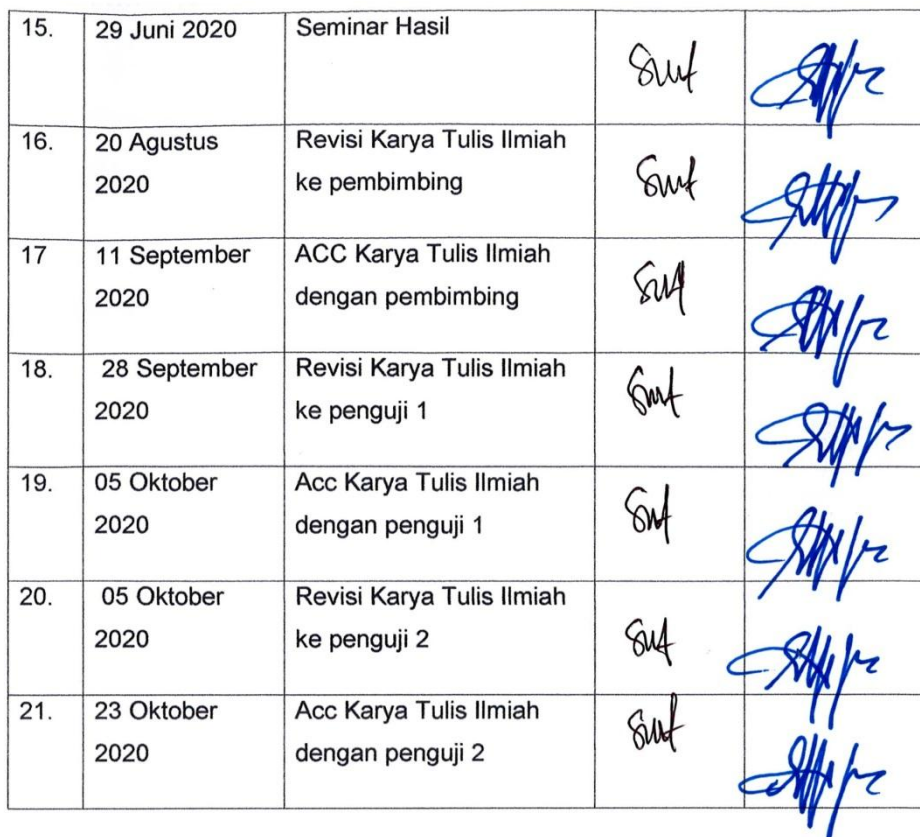 15. 29 Juni 2020 Seminar Hasil
16. 20 Agustus Revisi Karya Tulis Ilmiah
2020 ke pembimbing
17 11 September ACC Karya Tulis Ilmiah
2020 dengan pembimbing
18. 28 September Revisi Karya Tulis Ilmiah
2020 ke penguji 1
19. 05 Oktober Acc Karya Tulis Ilmiah
2020 dengan penguji 1
20. 05 Oktober Revisi Karya Tulis Ilmiah
2020 ke penguji 2
21. 23 Oktober Acc Karya Tulis Ilmiah
2020 dengan penguji 2